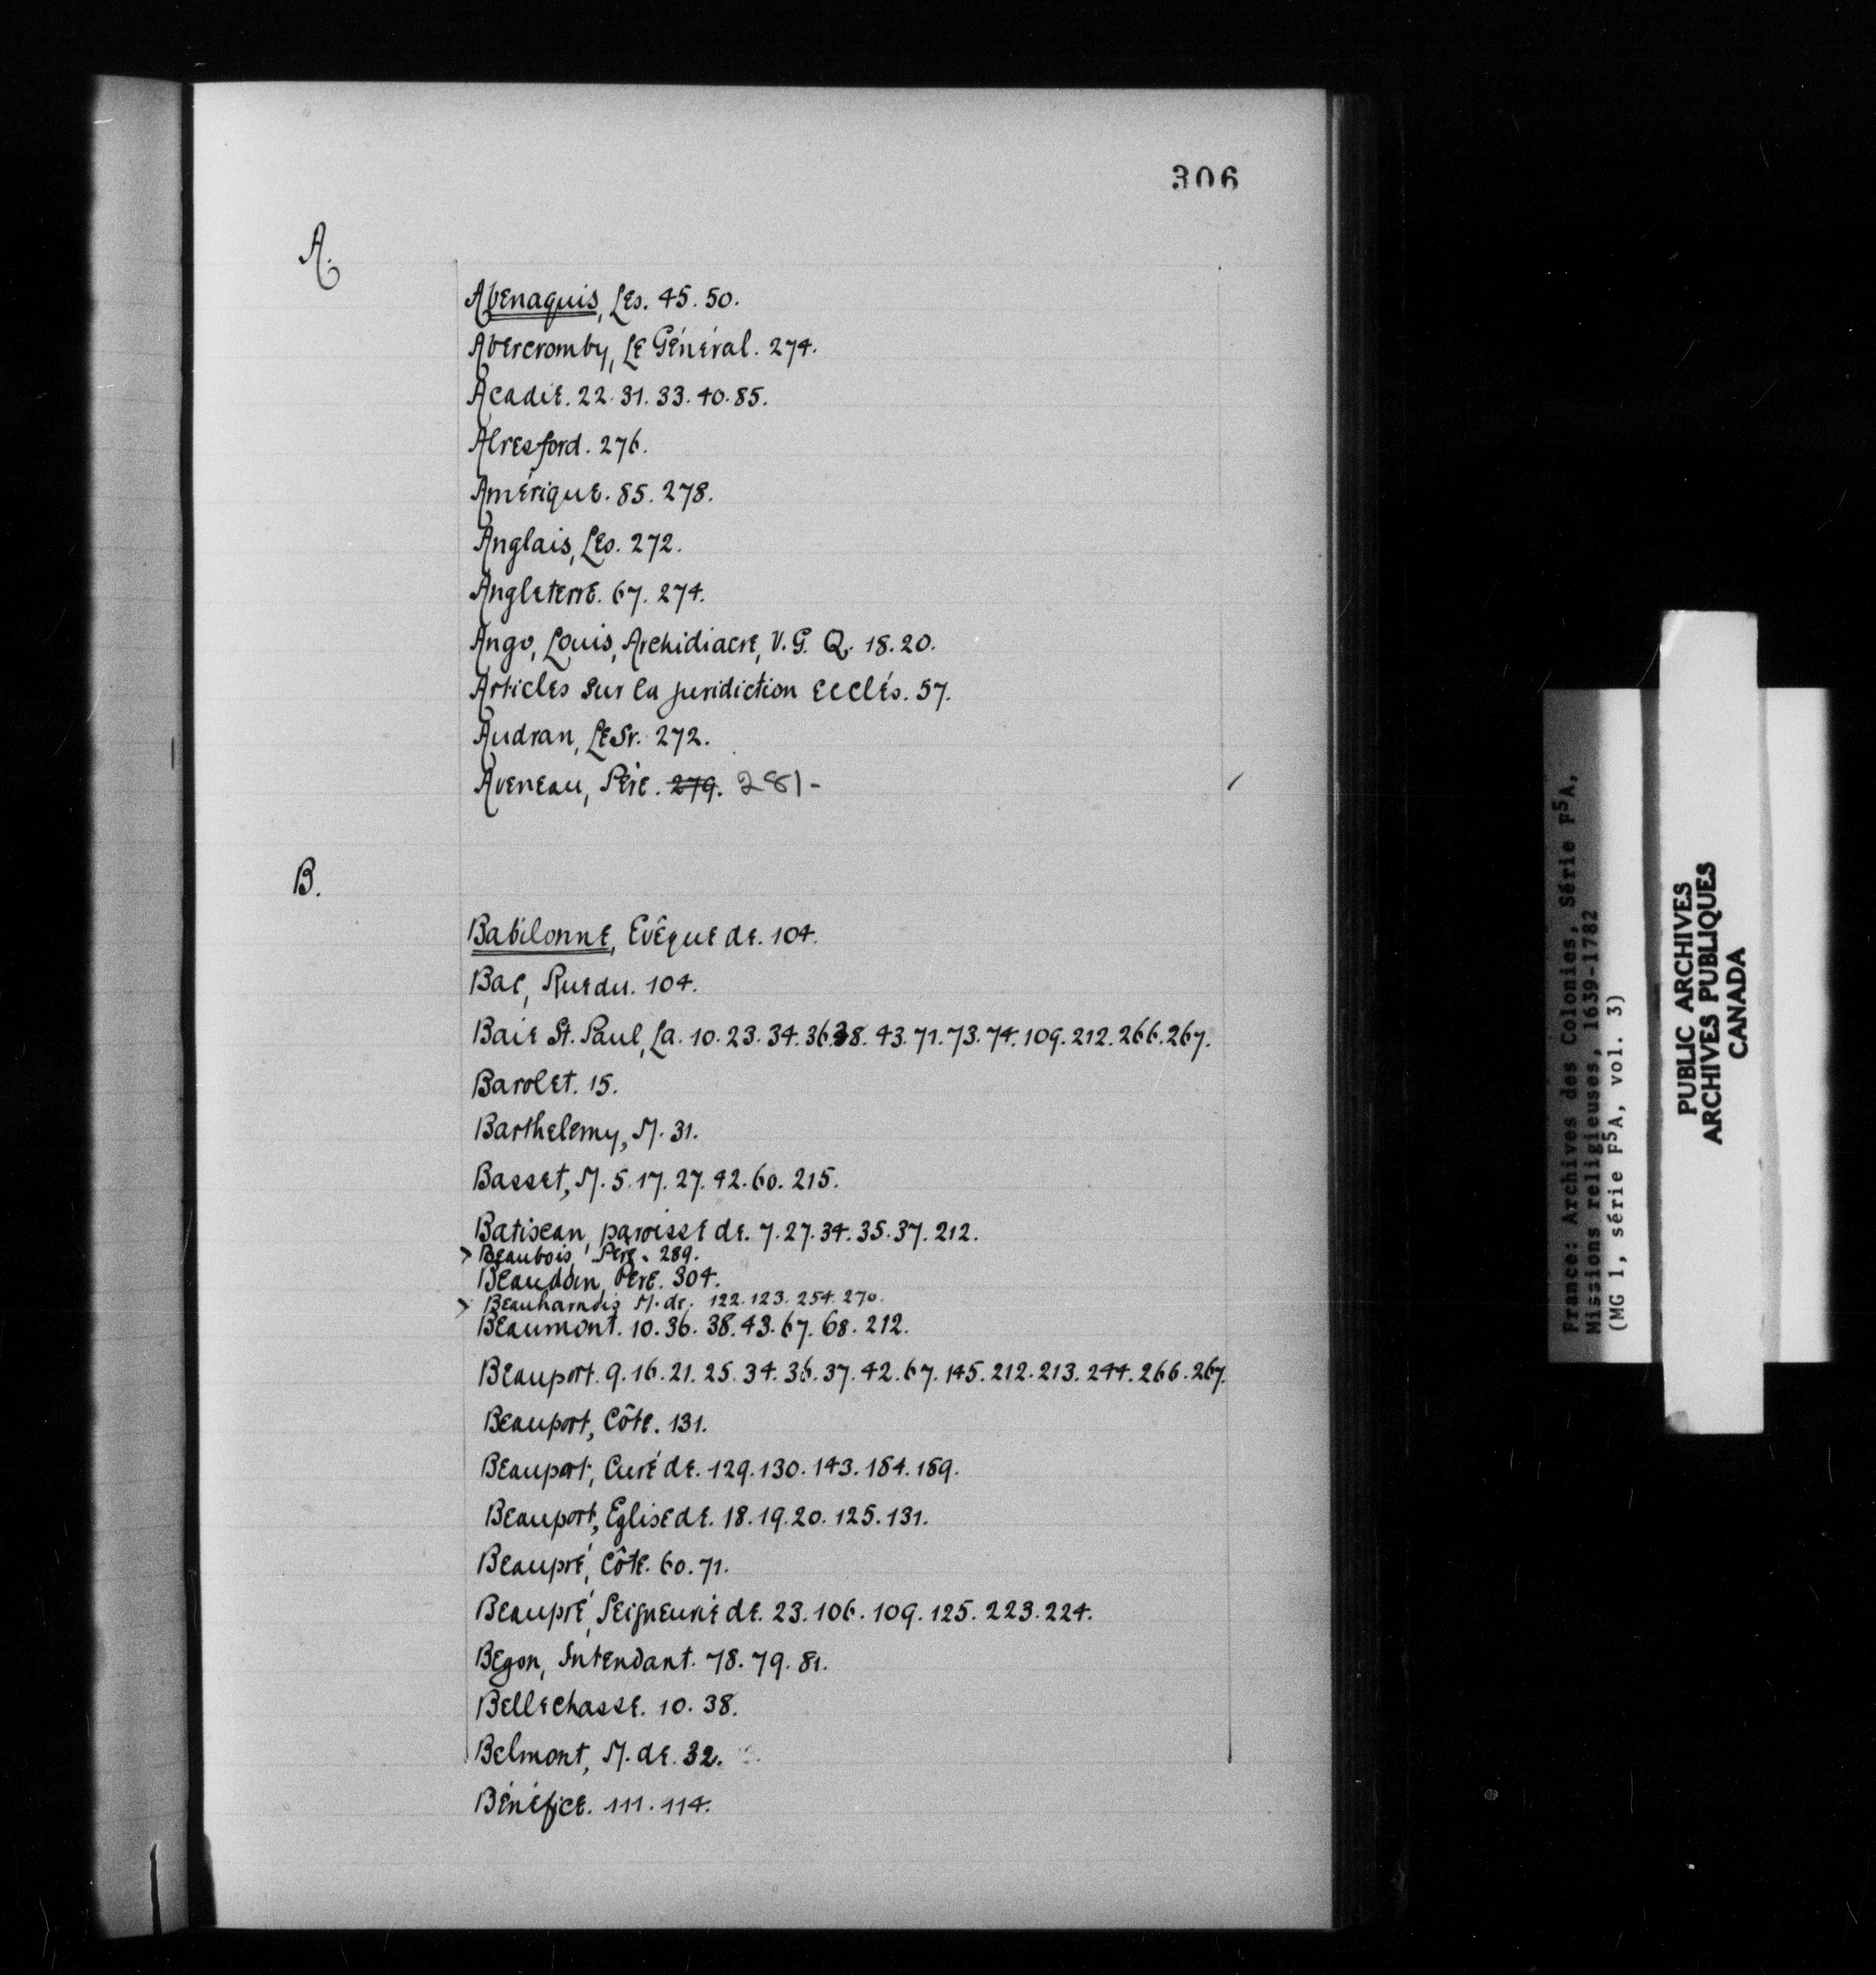 306
A.
Abenaquis, Les. 45. 50.
Abercromby, Le Général. 274.
Acadie. 22. 31. 33. 40. 85.
Alresford. 276.
Amérique. 85. 278.
Anglais, Les. 272.
Angleterre. 67. 274.
Ango, Louis, Archidiacre, V. G. Q. 18. 20.
Articles sur la juridiction Ecclés. 57.
Audran, Le Sr. 272.
Aveneau, Père. 279. 281-
B.
Babilonne, Evêque de. 104.
Bac, Rue du. 104.
Baie St. Paul, La. 10. 23. 34. 36. 38. 43. 71. 73. 74. 109. 212. 266. 267.
Barolet. 15.
Barthelemy, M. 31.
Basset, M. 5. 17. 27. 42. 60. 215.
Batiscan, paroisse de. 7. 27. 34. 35. 37. 212.
> Beaubois, Père. 289.
Beaudoin, Père. 304.
> Beauharnois, M. de. 122. 123. 254. 270.
Beaumont. 10. 36. 38. 43. 67. 68. 212.
Beauport. 9. 16. 21. 25. 34. 36. 37. 42. 67. 145. 212. 213. 244. 266. 267.
Beauport, Côte. 131.
Beauport, Curé de. 129. 130. 143. 184. 189.
Beauport, Eglise de. 18. 19. 20. 125. 131.
Beaupré, Côte. 60. 71.
Beaupré, Seigneurie de. 23. 106. 109. 125. 223. 224.
Begon, Intendant. 78. 79. 81.
Bellechasse. 10. 38.
Belmont, M. de. 32.
Bénéfice. 111. 114.
France: Archives des Colonies, Série F5A,
Missions religieuses, 1639-1782
(MG 1, série F5A, vol. 3)
PUBLIC ARCHIVES
ARCHIVES PUBLIQUES
CANADA